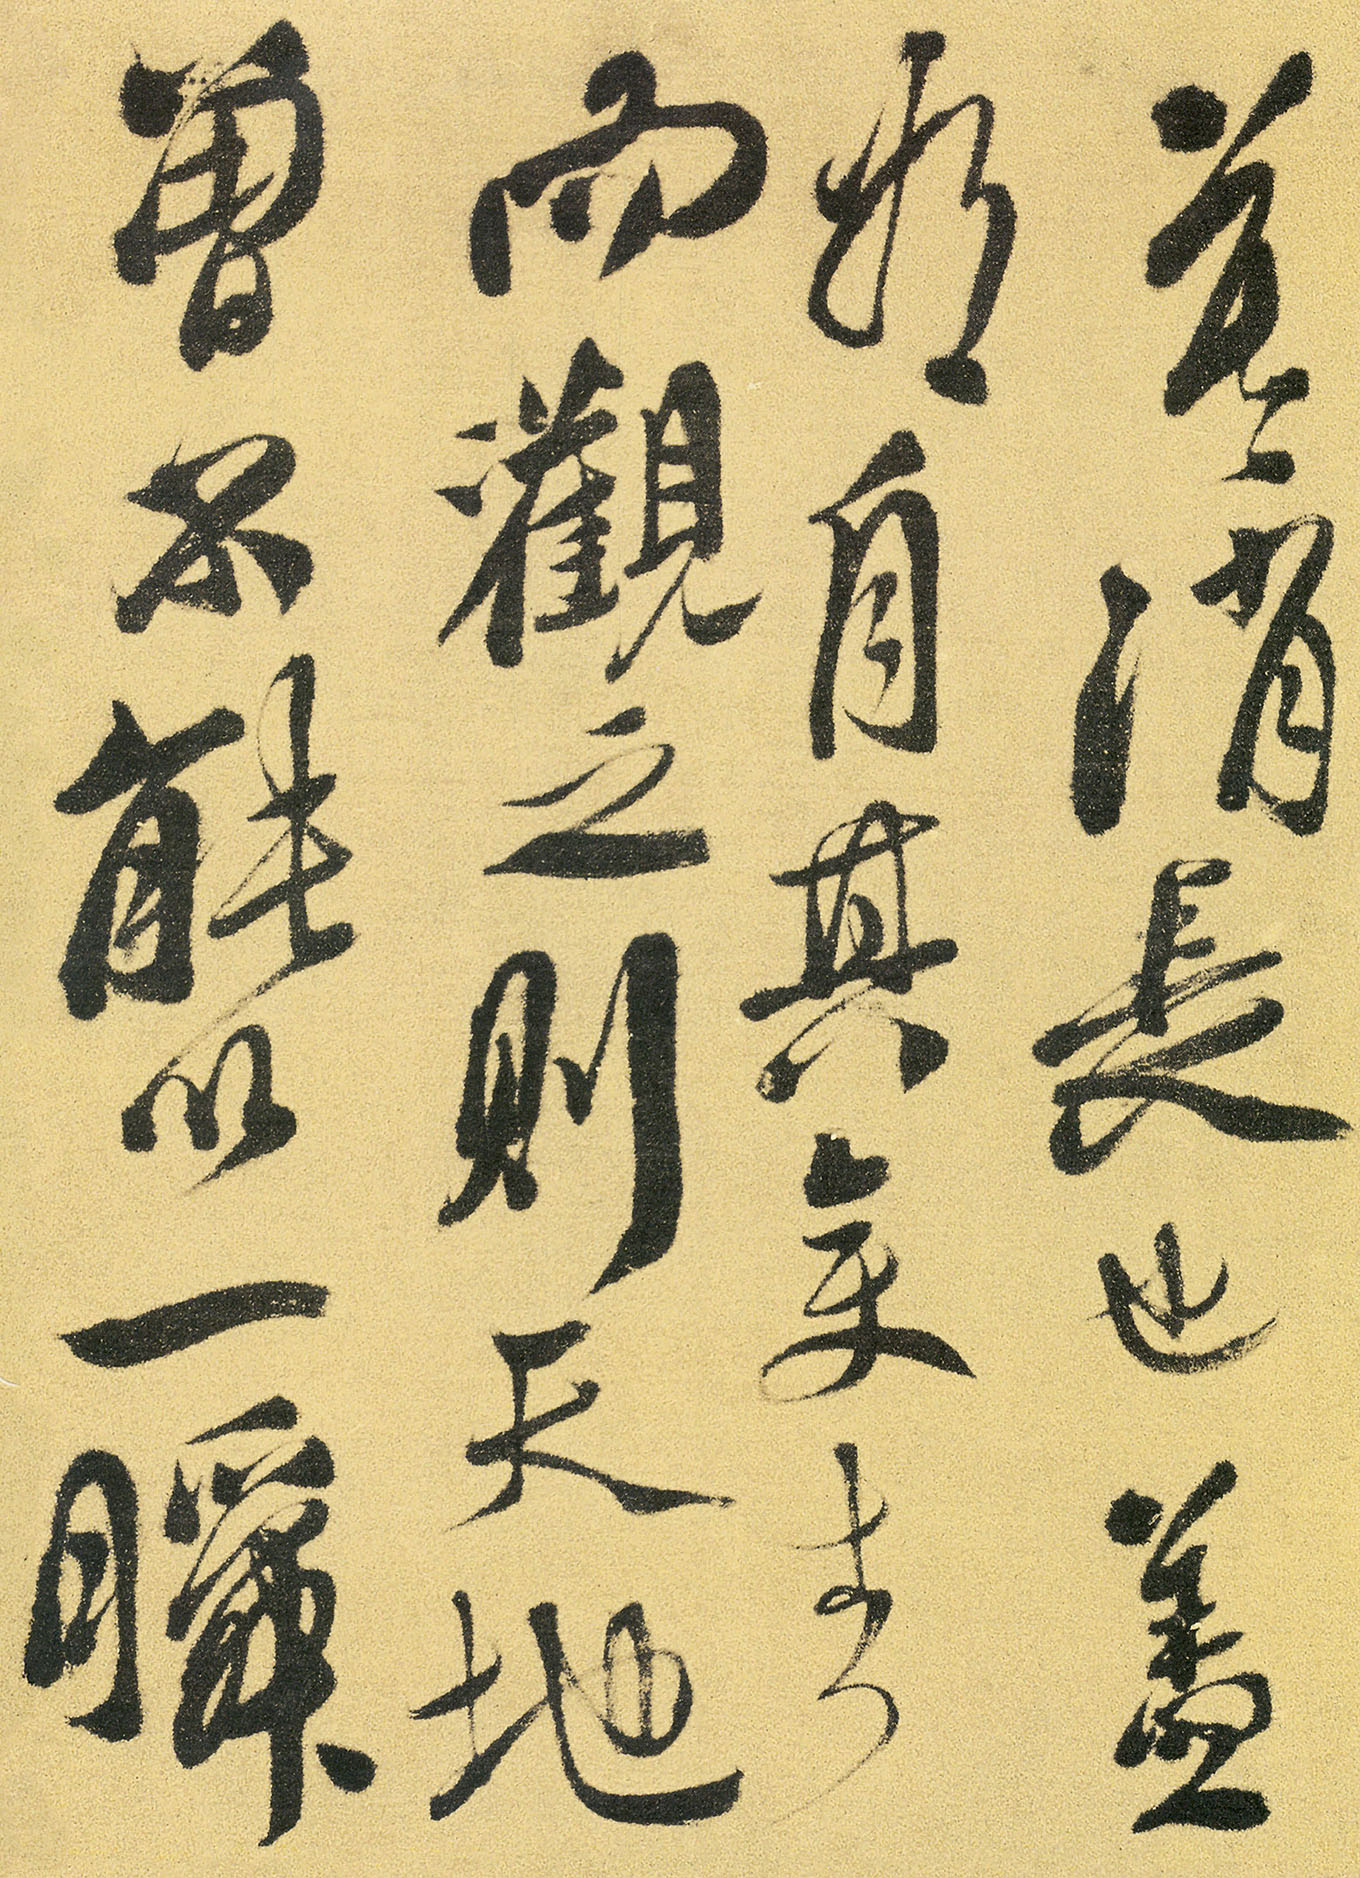 莫消長也蓋
將自其變者
而觀之則天地
曾不能以一瞬